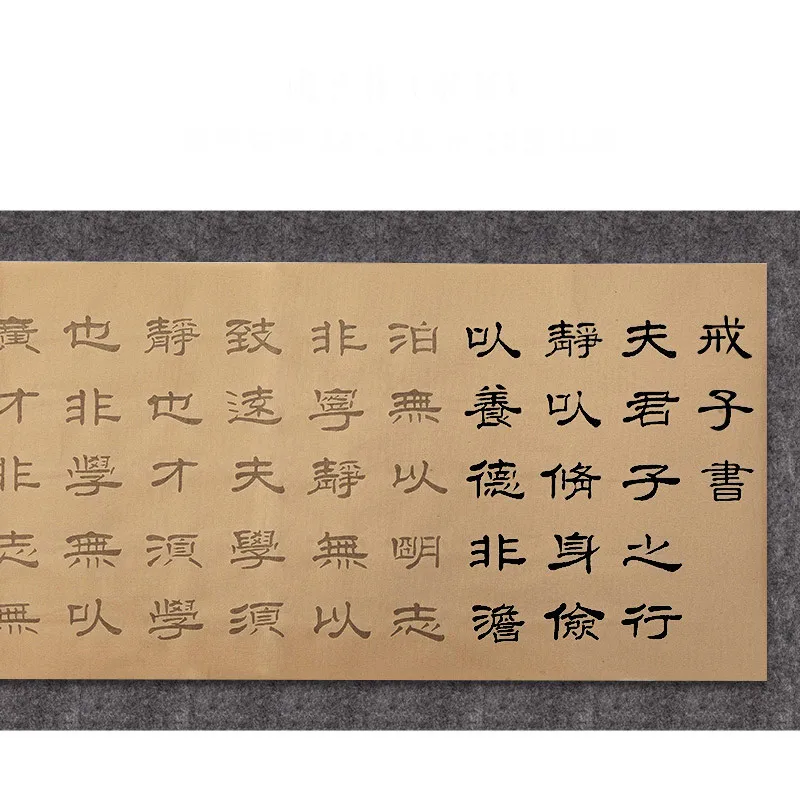 戒子書
夫君子之行
靜以脩身儉
以養德非澹
泊無以明志
非寧靜無以
致遠夫學須
靜也才須學
也非學無以
廣才非志無